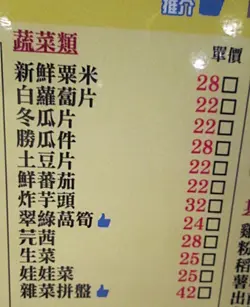 推介
蔬菜類 單價
新鮮粟米 28□
白蘿蔔片 22□
冬瓜片 22□
勝瓜件 28□
土豆片 22□
鮮蕃茄 22□
炸芋頭 32□
翠綠萵筍 24□
芫茜 28□
生菜 25□
娃娃菜 25□
雜菜拼盤 42□
雞
粉
稻
薯
出